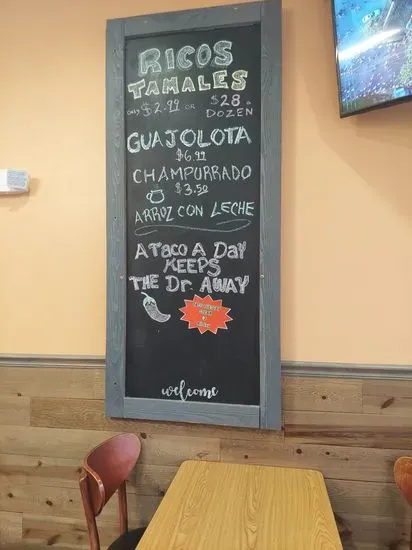 RICOS
TAMALES
ONLY $2.99 OR $28.
DOZEN
GUAJOLOTA
$6.99
CHAMPURRADO
$3.50
ARROZ CON LECHE
A TACO A DAY
KEEPS
THE Dr. AWAY
welcome